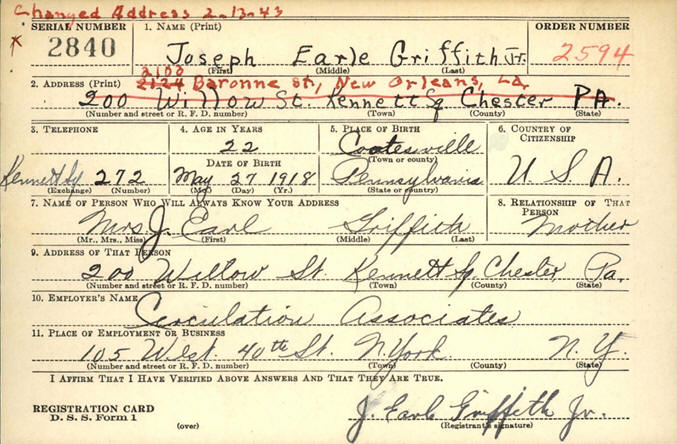 Changed Address 2-13-43
SERIAL NUMBER 1. NAME (Print) ORDER NUMBER
* 2840 Joseph Earle Griffith Jr. 2594
(First) (Middle) (Last)
2100
2. ADDRESS (Print) 2124 Baronne St., New Orleans, La.
200 Willow St. Kennett Sq. Chester PA.
(Number and street or R. F. D. number) (Town) (County) (State)
3. TELEPHONE 4. AGE IN YEARS 5. PLACE OF BIRTH 6. COUNTRY OF CITIZENSHIP
22 Coatesville
(Town or county)
DATE OF BIRTH
Kennett Sq. 272 May 27 1918 Pennsylvania U. S. A.
(Exchange) (Number) (Mo.) (Day) (Yr.) (State or country)
7. NAME OF PERSON WHO WILL ALWAYS KNOW YOUR ADDRESS 8. RELATIONSHIP OF THAT PERSON
Mrs. J. Earl Griffith Mother
(Mr., Mrs., Miss) (First) (Middle) (Last)
9. ADDRESS OF THAT PERSON
200 Willow St. Kennett Sq. Chester Pa.
(Number and street or R. F. D. number) (Town) (County) (State)
10. EMPLOYER'S NAME
Circulation Associates
11. PLACE OF EMPLOYMENT OR BUSINESS
105 West. 40th St. N York N. Y.
(Number and street or R. F. D. number) (Town) (County) (State)
I AFFIRM THAT I HAVE VERIFIED ABOVE ANSWERS AND THAT THEY ARE TRUE.
REGISTRATION CARD
D. S. S. Form 1 (over)
J. Earle Griffith Jr.
(Registrant's signature)